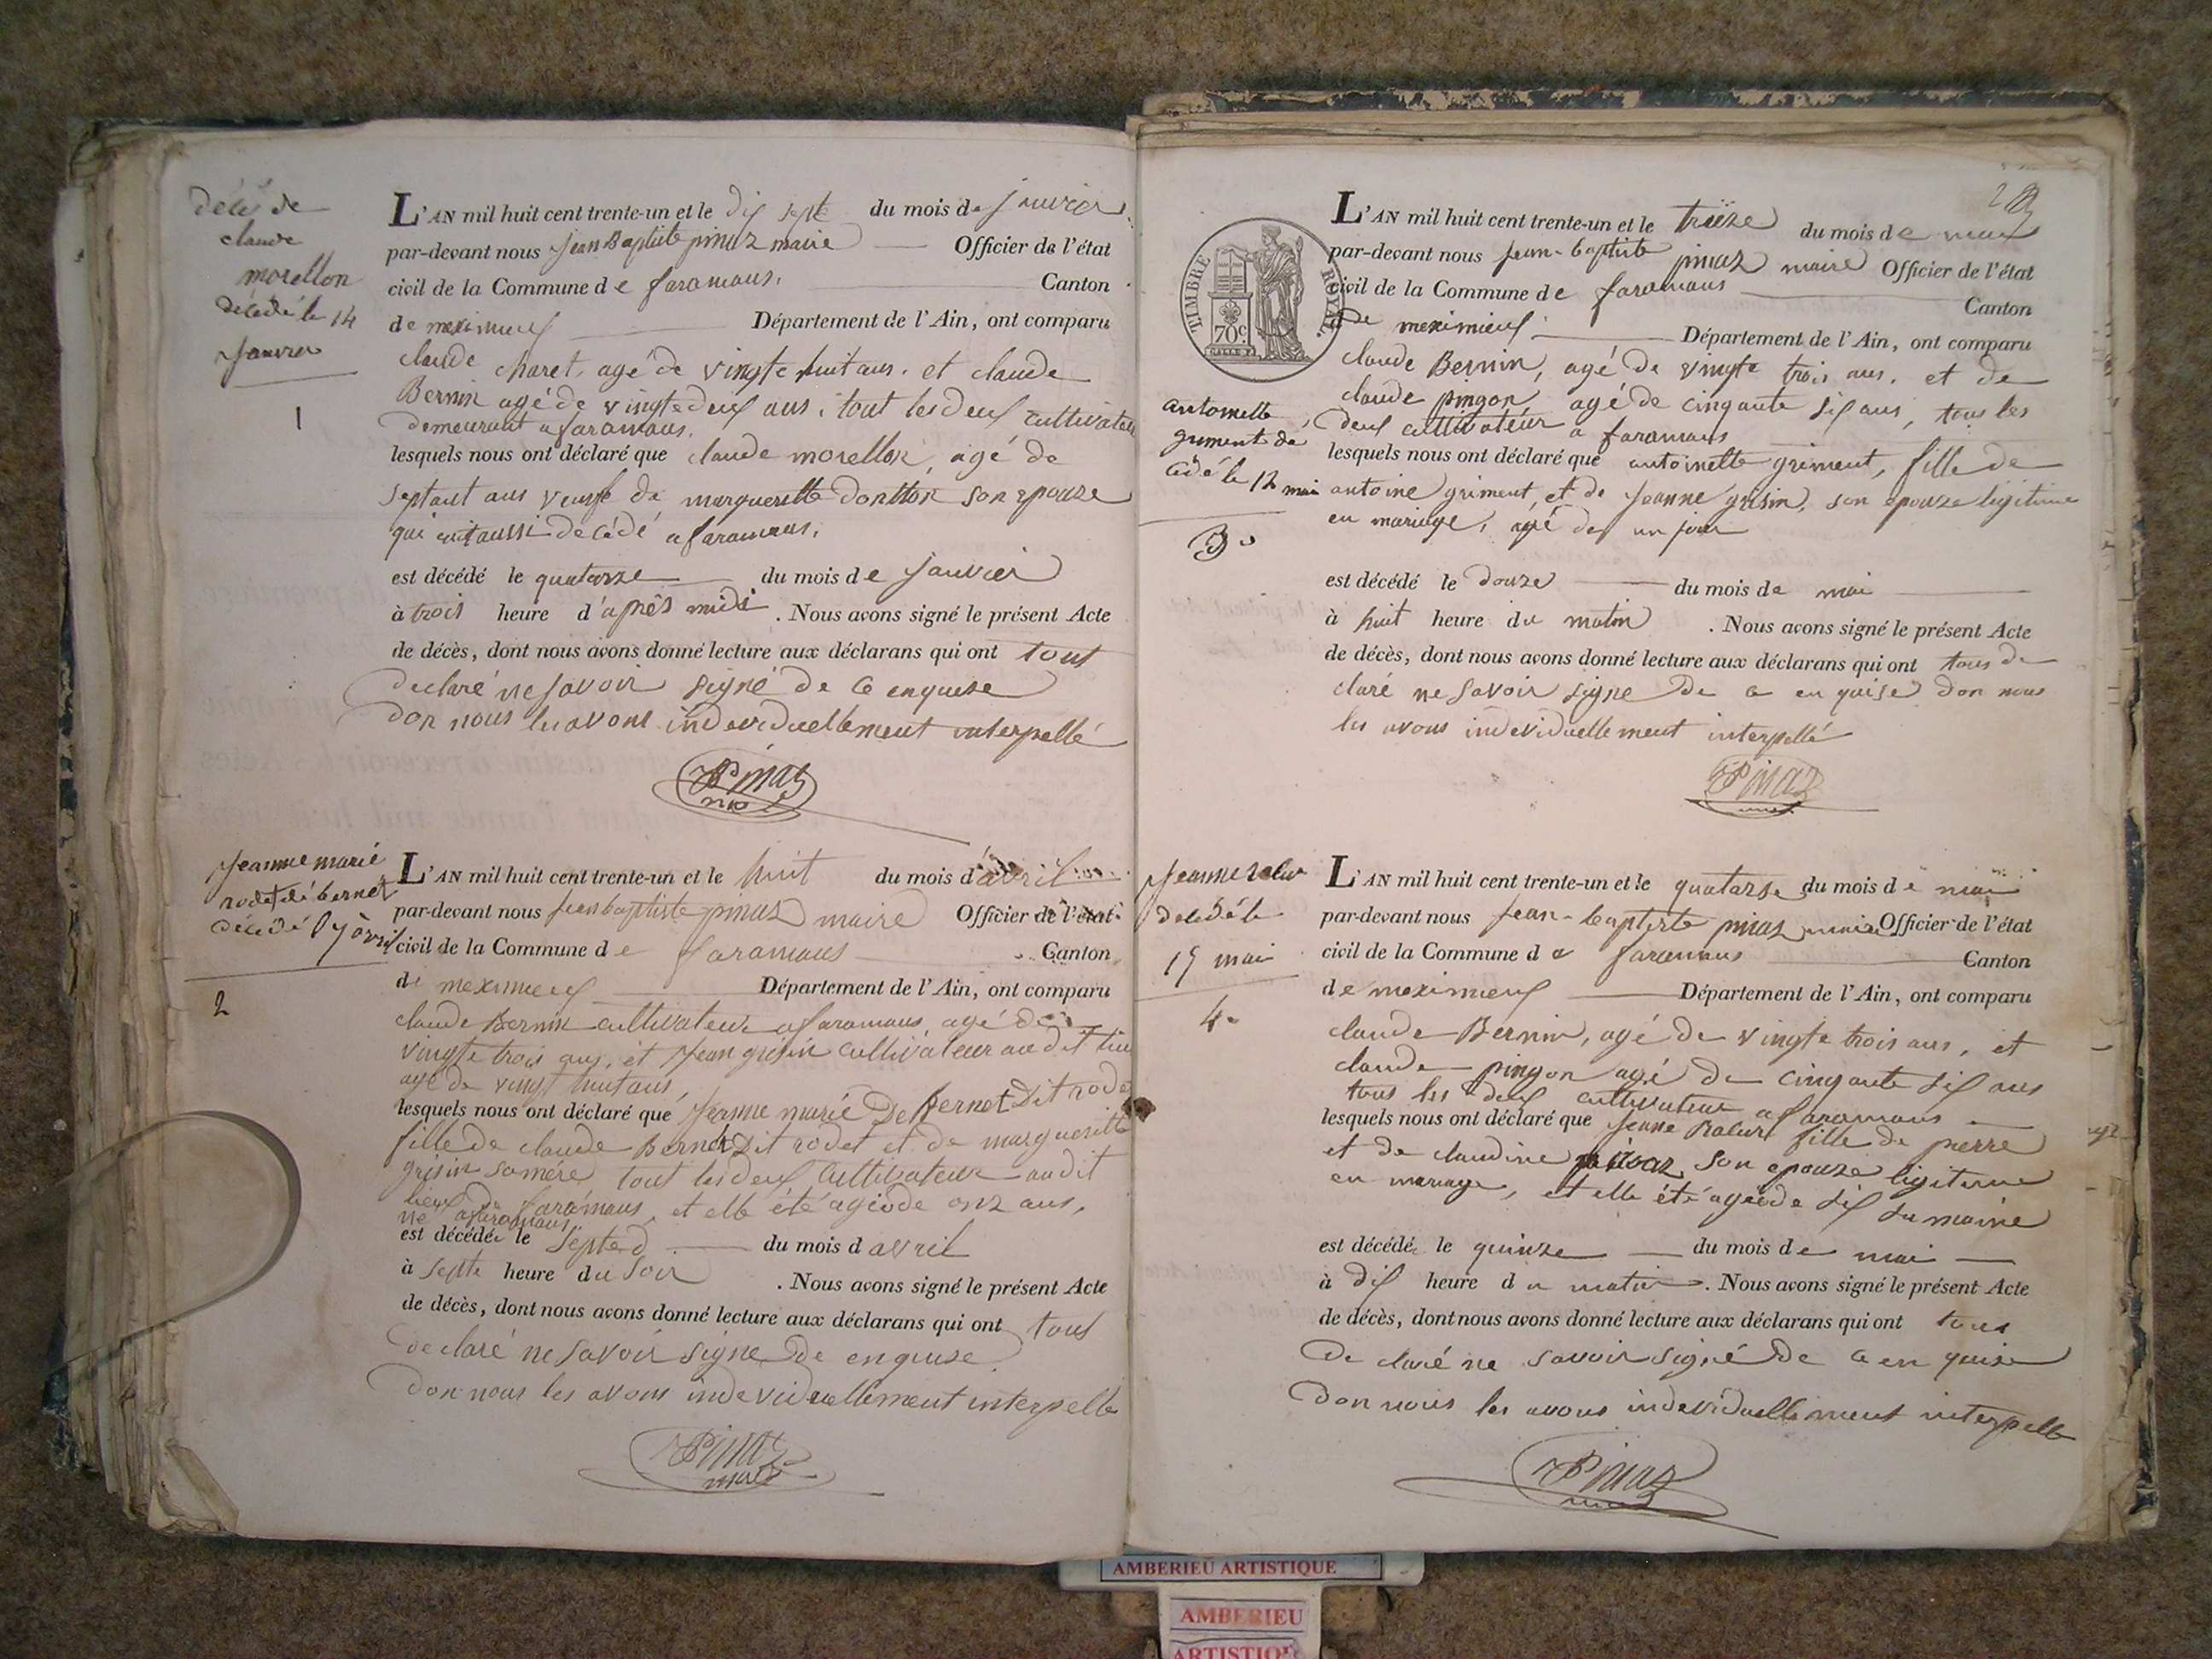 décès de
claude
morellon
décédé le 14
Janvier
1
L'AN mil huit cent trente-un et le dix septe du mois de janvier
par-devant nous Jean Baptiste pinaz maire Officier de l'état
civil de la Commune de faramans. Canton
de meximieux Département de l'Ain, ont comparu
claude charet, agé de vingte huit ans. et claude
Bernin agé de vingtedeux ans, tout lesdeux cultivateur
demeurant a faramans.
lesquels nous ont déclaré que claude morellon, agé de
septant ans veuffe de marguerette dontton son epouze
qui aussi decédé a faramans.
est décédé le quatorze du mois de Janvier
à trois heure d'après midi. Nous avons signé le présent Acte
de décès, dont nous avons donné lecture aux déclarans qui ont tout
declaré ne savoir signé de ce enquise
don nous les avons individuellement interpellé
Pinaz
Jeanne marie
rodet de bernet
décédé l 7 avril
2
L'AN mil huit cent trente-un et le huit du mois d'avril
par-devant nous jean baptiste pinaz maire Officier de l'état
civil de la Commune de faramans Canton
de meximieux Département de l'Ain, ont comparu
claude Bernin cultivateur a faramans, agé de
vingte trois ans, et Jean grisin cultivateur au dit lieu
agé de vingt huit ans,
lesquels nous ont déclaré que Jeanne marie De bernet Dit rode
fille de claude Bernet Dit rodet et de margueritte
grisin samére tout lesdeux Cultivateur audit
lieux de faramans, et elle été agéede onz ans,
ne a faramans.
est décédée le septe du mois d avril
à septe heure du soir. Nous avons signé le présent Acte
de décès, dont nous avons donné lecture aux déclarans qui ont tout
declaré ne savoir signe de enquise
don nous les avons individuellement interpelle
Pinaz
maire
213
TIMBRE ROYAL
70c
L'AN mil huit cent trente-un et le treize du mois de mai
par-devant nous jean-baptiste pinaz maire Officier de l'état
civil de la Commune de faramans Canton
de meximieux Département de l'Ain, ont comparu
claude Bernin, agé de vingte trois ans, et de
claude pingon agé de cinqante six ans, tous les
deux cultivateur a faramans
antoinette
griment dé
cédé le 12 mai
3
lesquels nous ont déclaré que antoinette griment, fille de
antoine griment et de Jeanne grisin, son epouze ligitime
en mariage, agé de un jour
est décédé le douze du mois de mai
à huit heure du matin. Nous avons signé le présent Acte
de décès, dont nous avons donné lecture aux déclarans qui ont tous de
claré ne savoir signe de ce en quise don nous
les avons individuellement interpellé
Pinaz
Jeanne
décédé le
15 mai
4
L'AN mil huit cent trente-un et le quatorse du mois de mai
par-devant nous jean-baptiste pinaz maire Officier de l'état
civil de la Commune de faramans Canton
de meximieux Département de l'Ain, ont comparu
claude Bernin, agé de vingte trois ans, et
claude pingon agé de cinqante six ans
tous les deux cultivateur a faramans
lesquels nous ont déclaré que Jeane fille de pierre
et de claudine son epouze ligitime
en mariage, et elle été agéede six semaine
est décédée le quinze du mois de mai
à dix heure du matin. Nous avons signé le présent Acte
de décès, dont nous avons donné lecture aux déclarans qui ont tous
de claré ne savoir signé de ce en quise
don nous les avons individuellement interpelle
Pinaz
AMBERIEU ARTISTIQUE
AMBERIEU
ARTISTIQ